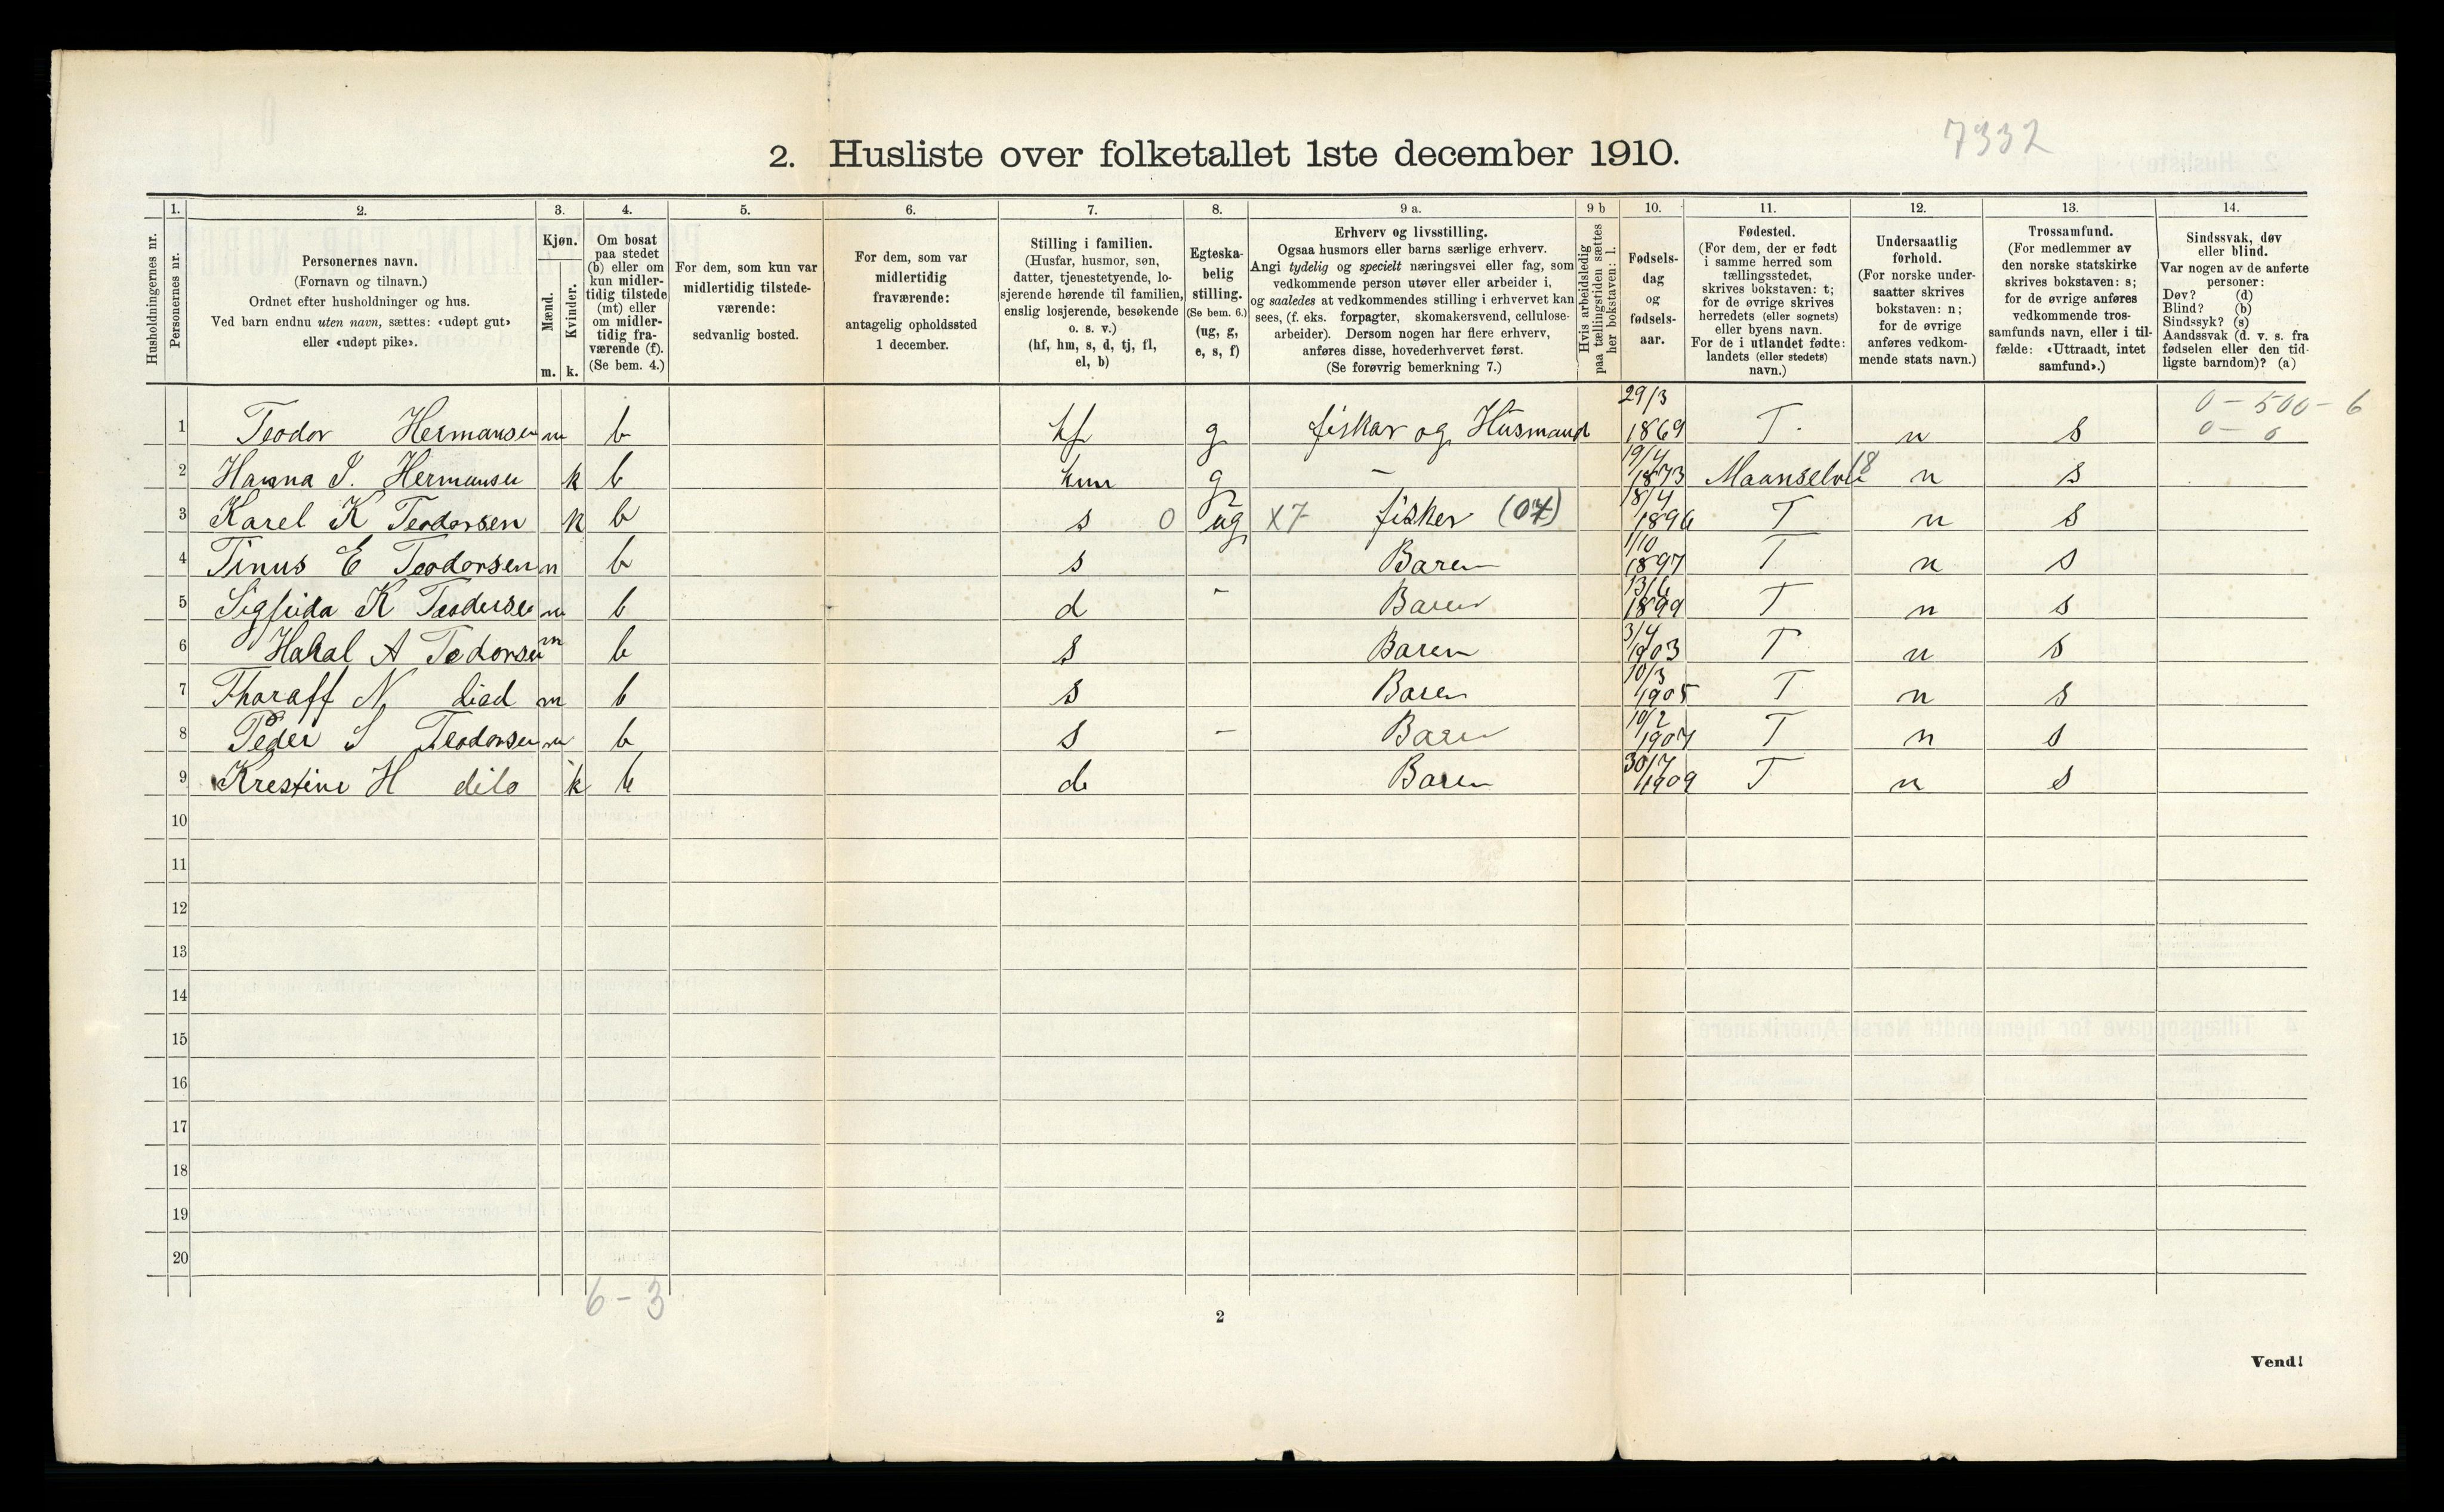 7332
2. Husliste over folketallet 1ste december 1910.
Husholdningernes nr.
1. Personernes nr.
2. Personernes navn.
(Fornavn og tilnavn.)
Ordnet efter husholdninger og hus.
Ved barn endnu uten navn, sættes: «udøpt gut»
eller «udøpt pike».
3. Kjøn.
Mænd. Kvinder.
m. k.
4. Om bosat
paa stedet
(b) eller om
kun midler-
tidig tilstede
(mt) eller
om midler-
tidig fra-
værende (f).
(Se bem. 4.)
5. For dem, som kun var
midlertidig tilstede-
værende:
sedvanlig bosted.
6. For dem, som var
midlertidig
fraværende:
antagelig opholdssted
1 december.
7. Stilling i familien.
(Husfar, husmor, søn,
datter, tjenestetyende, lo-
sjerende hørende til familien,
enslig losjerende, besøkende
o. s. v.)
(hf, hm, s, d, tj, fl,
el, b)
8. Egteska-
belig
stilling.
(Se bem. 6.)
(ug, g,
e, s, f)
9 a. Erhverv og livsstilling.
Ogsaa husmors eller barns særlige erhverv.
Angi tydelig og specielt næringsvei eller fag, som
vedkommende person utøver eller arbeider i,
og saaledes at vedkommendes stilling i erhvervet kan
sees, (f. eks. forpagter, skomakersvend, cellulose-
arbeider). Dersom nogen har flere erhverv,
anføres disse, hovederhvervet først.
(Se forøvrig bemerkning 7.)
9 b Hvis arbeidsledig
paa tællingstiden sættes
her bokstaven: l.
10. Fødsels-
dag
og
fødsels-
aar.
11. Fødested.
(For dem, der er født
i samme herred som
tællingsstedet,
skrives bokstaven: t;
for de øvrige skrives
herredets (eller sognets)
eller byens navn.
For de i utlandet fødte:
landets (eller stedets)
navn.)
12. Undersaatlig
forhold.
(For norske under-
saatter skrives
bokstaven: n;
for de øvrige
anføres vedkom-
mende stats navn.)
13. Trossamfund.
(For medlemmer av
den norske statskirke
skrives bokstaven: s;
for de øvrige anføres
vedkommende tros-
samfunds navn, eller i til-
fælde: «Uttraadt, intet
samfund».)
14. Sindssvak, døv
eller blind.
Var nogen av de anførte
personer:
Døv? (d)
Blind? (b)
Sindssyk? (s)
Aandssvak (d. v. s. fra
fødselen eller den tid-
ligste barndom)? (a)
1 Teodor Hermansen m b hf g fiskar og Husmand 29/3 1869 T. n s 0 - 500 - 6
0 - 0
2 Hanna S. Hermansen k b hm g - 19/4 1873 Maanselv 18 n s
3 Karel K Teodorsen k b s 0 ug X7 fisker (07) 18/4 1896 T n s
4 Tinus E Teodorsen m b s Baren 1/10 1897 T n s
5 Sigfrida K Teodorsen m b d - Baren 13/6 1899 T n s
6 Hakal A Tedorsen m b s Baren 3/4 1903 T n s
7 Tharaff N diad m b s Baren 10/3 1905 T n s
8 Peder S Teodorsen m b s - Baren 10/2 1907 T n s
9 Krestine H dito k b d Baren 30/7 1909 T n s
10
11
12
13
14
15
16
17
18
19
20
6 - 3
2
Vend!